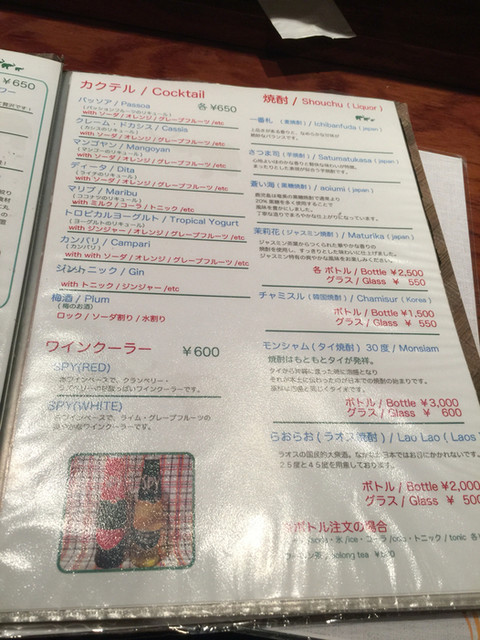 ¥650
カクテル / Cocktail
各 ¥650
パッソア / Passoa
(パッションフルーツのリキュール)
with ソーダ / オレンジ / グレープフルーツ /etc
クレーム・ドカシス / Cassis
(カシスのリキュール)
with ソーダ / オレンジ / グレープフルーツ /etc
マンゴヤン / Mangoyan
(マンゴーのリキュール)
with ソーダ / オレンジ / グレープフルーツ /etc
ディータ / Dita
(ライチのリキュール)
with ソーダ / オレンジ / グレープフルーツ /etc
マリブ / Maribu
(ココナツのリキュール)
with ミルク / コーラ / トニック /etc
トロピカルヨーグルト / Tropical Yogurt
(ヨーグルトのリキュール)
with ジンジャー / オレンジ / グレープフルーツ /etc
カンパリ / Campari
(カンパリ)
with with ソーダ / オレンジ / グレープフルーツ /etc
ジントニック / Gin
with with トニック / ジンジャー /etc
梅酒 / Plum
(梅のお酒)
ロック / ソーダ割り / 水割り
ワインクーラー ¥600
SPY(RED)
赤ワインベースで、クランベリー・
ワインクーラーです。
SPY(WHITE)
白ワインベースで、ライム・グレープフルーツの
ワインクーラーです。
焼酎 / Shouchu ( Liquor )
一番札 (麦焼酎) / Ichibanfuda ( japan )
さつま司 (芋焼酎) / Satumatukasa ( japan )
まったりとした米麹が似合う芋焼酎です。
蒼い海 (黒糖焼酎) / aoiumi ( japan )
鹿児島は奄美の黒糖焼酎で通常より
20% 黒糖を多く使用することで
風味を豊かにしました。
丁寧な造りでまろやかな仕上がりになっています。
茉莉花 (ジャスミン焼酎) / Maturika ( japan )
ジャスミン茶葉からつくられた華やかな香りの
焼酎を使用し、すっきりとした味わいに仕上げました。
ジャスミン特有の爽やかな風味をお楽しみください。
各 ボトル / Bottle ¥2,500
グラス / Glass ¥ 550
チャミスル (韓国焼酎) / Chamisur ( Korea )
ボトル / Bottle ¥1,500
グラス / Glass ¥ 550
モンシャム (タイ焼酎) 30度 / Monsiam
焼酎はもともとタイが発祥。
タイから沖縄に渡った時に泡盛となり
それが本土に伝わったのが日本での焼酎の始まりです。
原料は泡盛と同じくタイ米です。
ボトル / Bottle ¥3,000
グラス / Glass ¥ 600
らおらお (ラオス焼酎) / Lao Lao ( Laos
ラオスの国民的大衆酒。なかなか日本ではお目にかかれないです。
25度と45度を用意しております。
ボトル / Bottle ¥2,000
グラス / Glass ¥ 500
ボトル注文の場合
水 /ice・コーラ /cola・トニック / tonic 各
ウーロン茶 / oolong tea